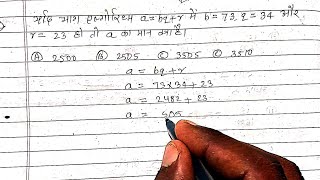 यदि भाग एल्गोरिथ्म a = bq+r में b = 73, q = 34 और
r = 23 हो तो a का मान क्या है।
(A) 2500 (B) 2505 (C) 3505 (D) 3510
a = bq+r
a = 73x34+23
a = 2482+23
a = 505